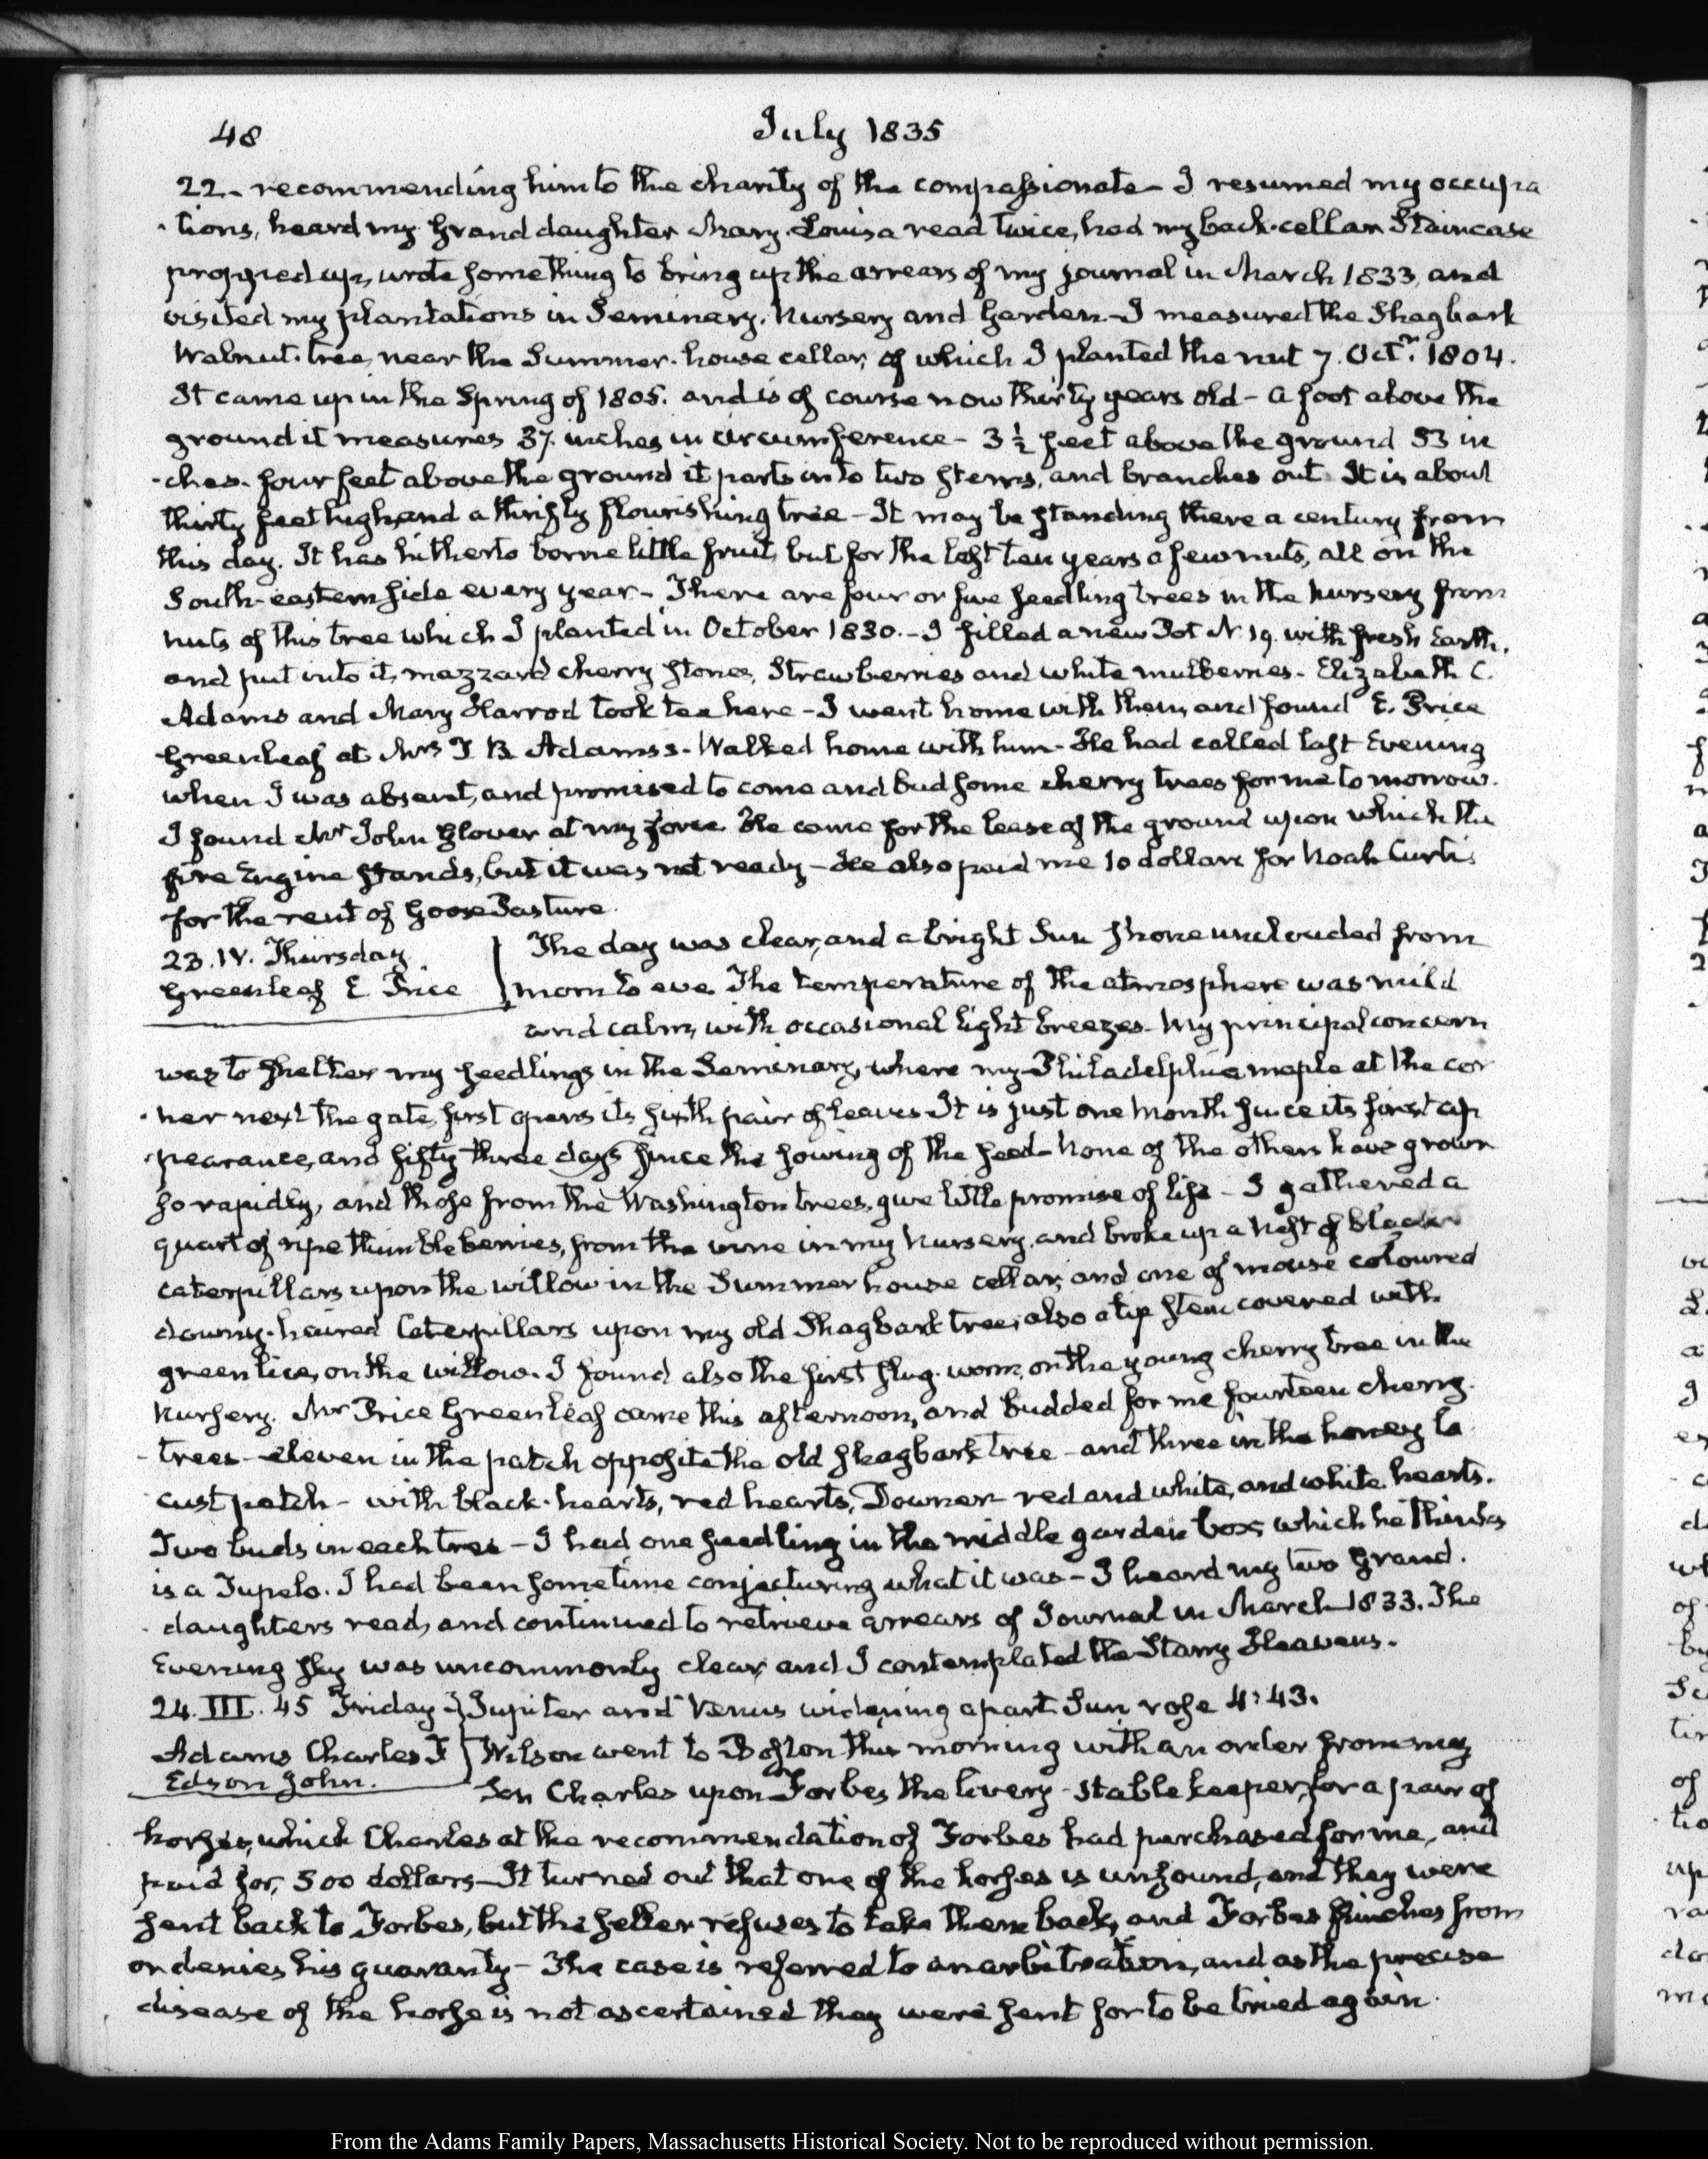 48
July 1835
22. recommending him to the charity of the compassionate - I resumed my occupa
tions, heard my Grand daughter Mary-Louisa read twice, had my back-cellar Staircase
propped up, wrote something to bring up the arrears of my journal in March 1833, and
visited my plantations in Seminary, Nursery and Garden - I measured the Shagbark
Walnut-tree, near the Summer-house cellar, of which I planted the nut 7. Octr. 1804.
It came up in the Spring of 1805. and is of course now thirty years old - a foot above the
ground it measures 37. inches in circumference - 3½ feet above the ground 33 in
-ches. four feet above the ground it parts into two stems, and branches out. It is about
thirty feet high, and a thrifty flourishing tree - It may be standing there a century from
this day. It has hitherto borne little fruit, but for the last ten years a few nuts, all on the
South-eastern side every year - There are four or five seedling trees in the Nursery from
nuts of this tree which I planted in October 1830. - I filled a new Pot N. 19. with fresh Earth,
and put into it, mazzard cherry stones, Strawberries and white mulberries - Elizabeth C.
Adams and Mary Harrod took tea here - I went home with them, and found E. Price
Greenleaf at Mrs T B Adams's. Walked home with him - He had called last Evening
when I was absent, and promised to come and bud some cherry trees for me to morrow.
I found Mr John Glover at my He came for the lease of the ground upon which the
fire Engine stands, but it was not ready - He also paid me 10 dollars for Noah Curtis
for the rent of Goose Pasture
23. IV. Thursday
Greenleaf E. Price
The day was clear, and a bright Sun shone unclouded from
morn to eve. The temperature of the atmosphere was mild
and calm, with occasional light breezes. My principal concern
was to shelter my seedlings in the Seminary, where my Philadelphia maple at the cor
-ner next the gate, first opens its sixth pair of leaves It is just one Month since its first ap
-pearance, and fifty three days since the sowing of the seed - None of the others have grown
so rapidly, and those from the Washington trees, give little promise of life - I gathered a
quart of ripe thimble berries, from the vine in my Nursery, and broke up a Nest of black
caterpillars upon the willow in the Summer house cellar, and one of mouse coloured
downy-haired Caterpillars upon my old Shagbark tree, also a tip stem covered with
green lice, on the willow. I found also the first slug-worm, on the young cherry tree in the
Nursery. Mr Price Greenleaf came this afternoon, and budded for me fourteen cherry-
-trees - eleven in the patch opposite the old shagbark tree - and three in the honey lo
-cust patch - with black-hearts, red hearts, Downer red and white, and white hearts.
Two buds in each tree - I had one seedling in the middle garden box, which he thinks
is a Tupelo. I had been sometime conjecturing what it was - I heard my two Grand-
-daughters read, and continued to retrieve arrears of Journal in March 1833. The
Evening sky was uncommonly clear, and I contemplated the Starry Heavens.
24. III. 45 Friday
Adams Charles F
Edson John.
Jupiter and Venus widening apart Sun rose 4:43.
Wilson went to Boston this morning with an order from my
Son Charles upon Forbes the livery-stable keeper, for a pair of
horses, which Charles at the recommendation of Forbes had purchased for me, and
paid for, 300 dollars - It turned out that one of the horses is unsound, and they were
sent back to Forbes, but the seller refuses to take them back, and Forbes flinches from
or denies his guaranty - The case is referred to an arbitration, and as the precise
disease of the horse is not ascertained they were sent for to be tried again.
From the Adams Family Papers, Massachusetts Historical Society. Not to be reproduced without permission.